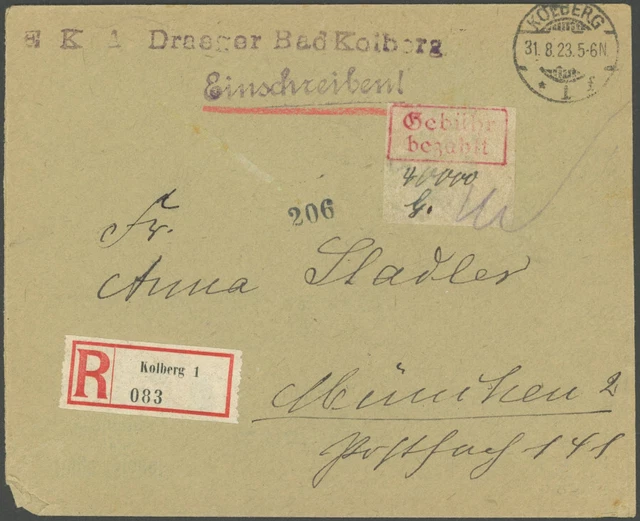 K 1 Draeger Bad Kolberg
KOLBERG
31.8.23.5-6N
* 1 f
Einschreiben!
Gebühr
bezahlt
40000
G.
206
Fr.
Anna Stadler
R
Kolberg 1
083
München 2
Postfach 141